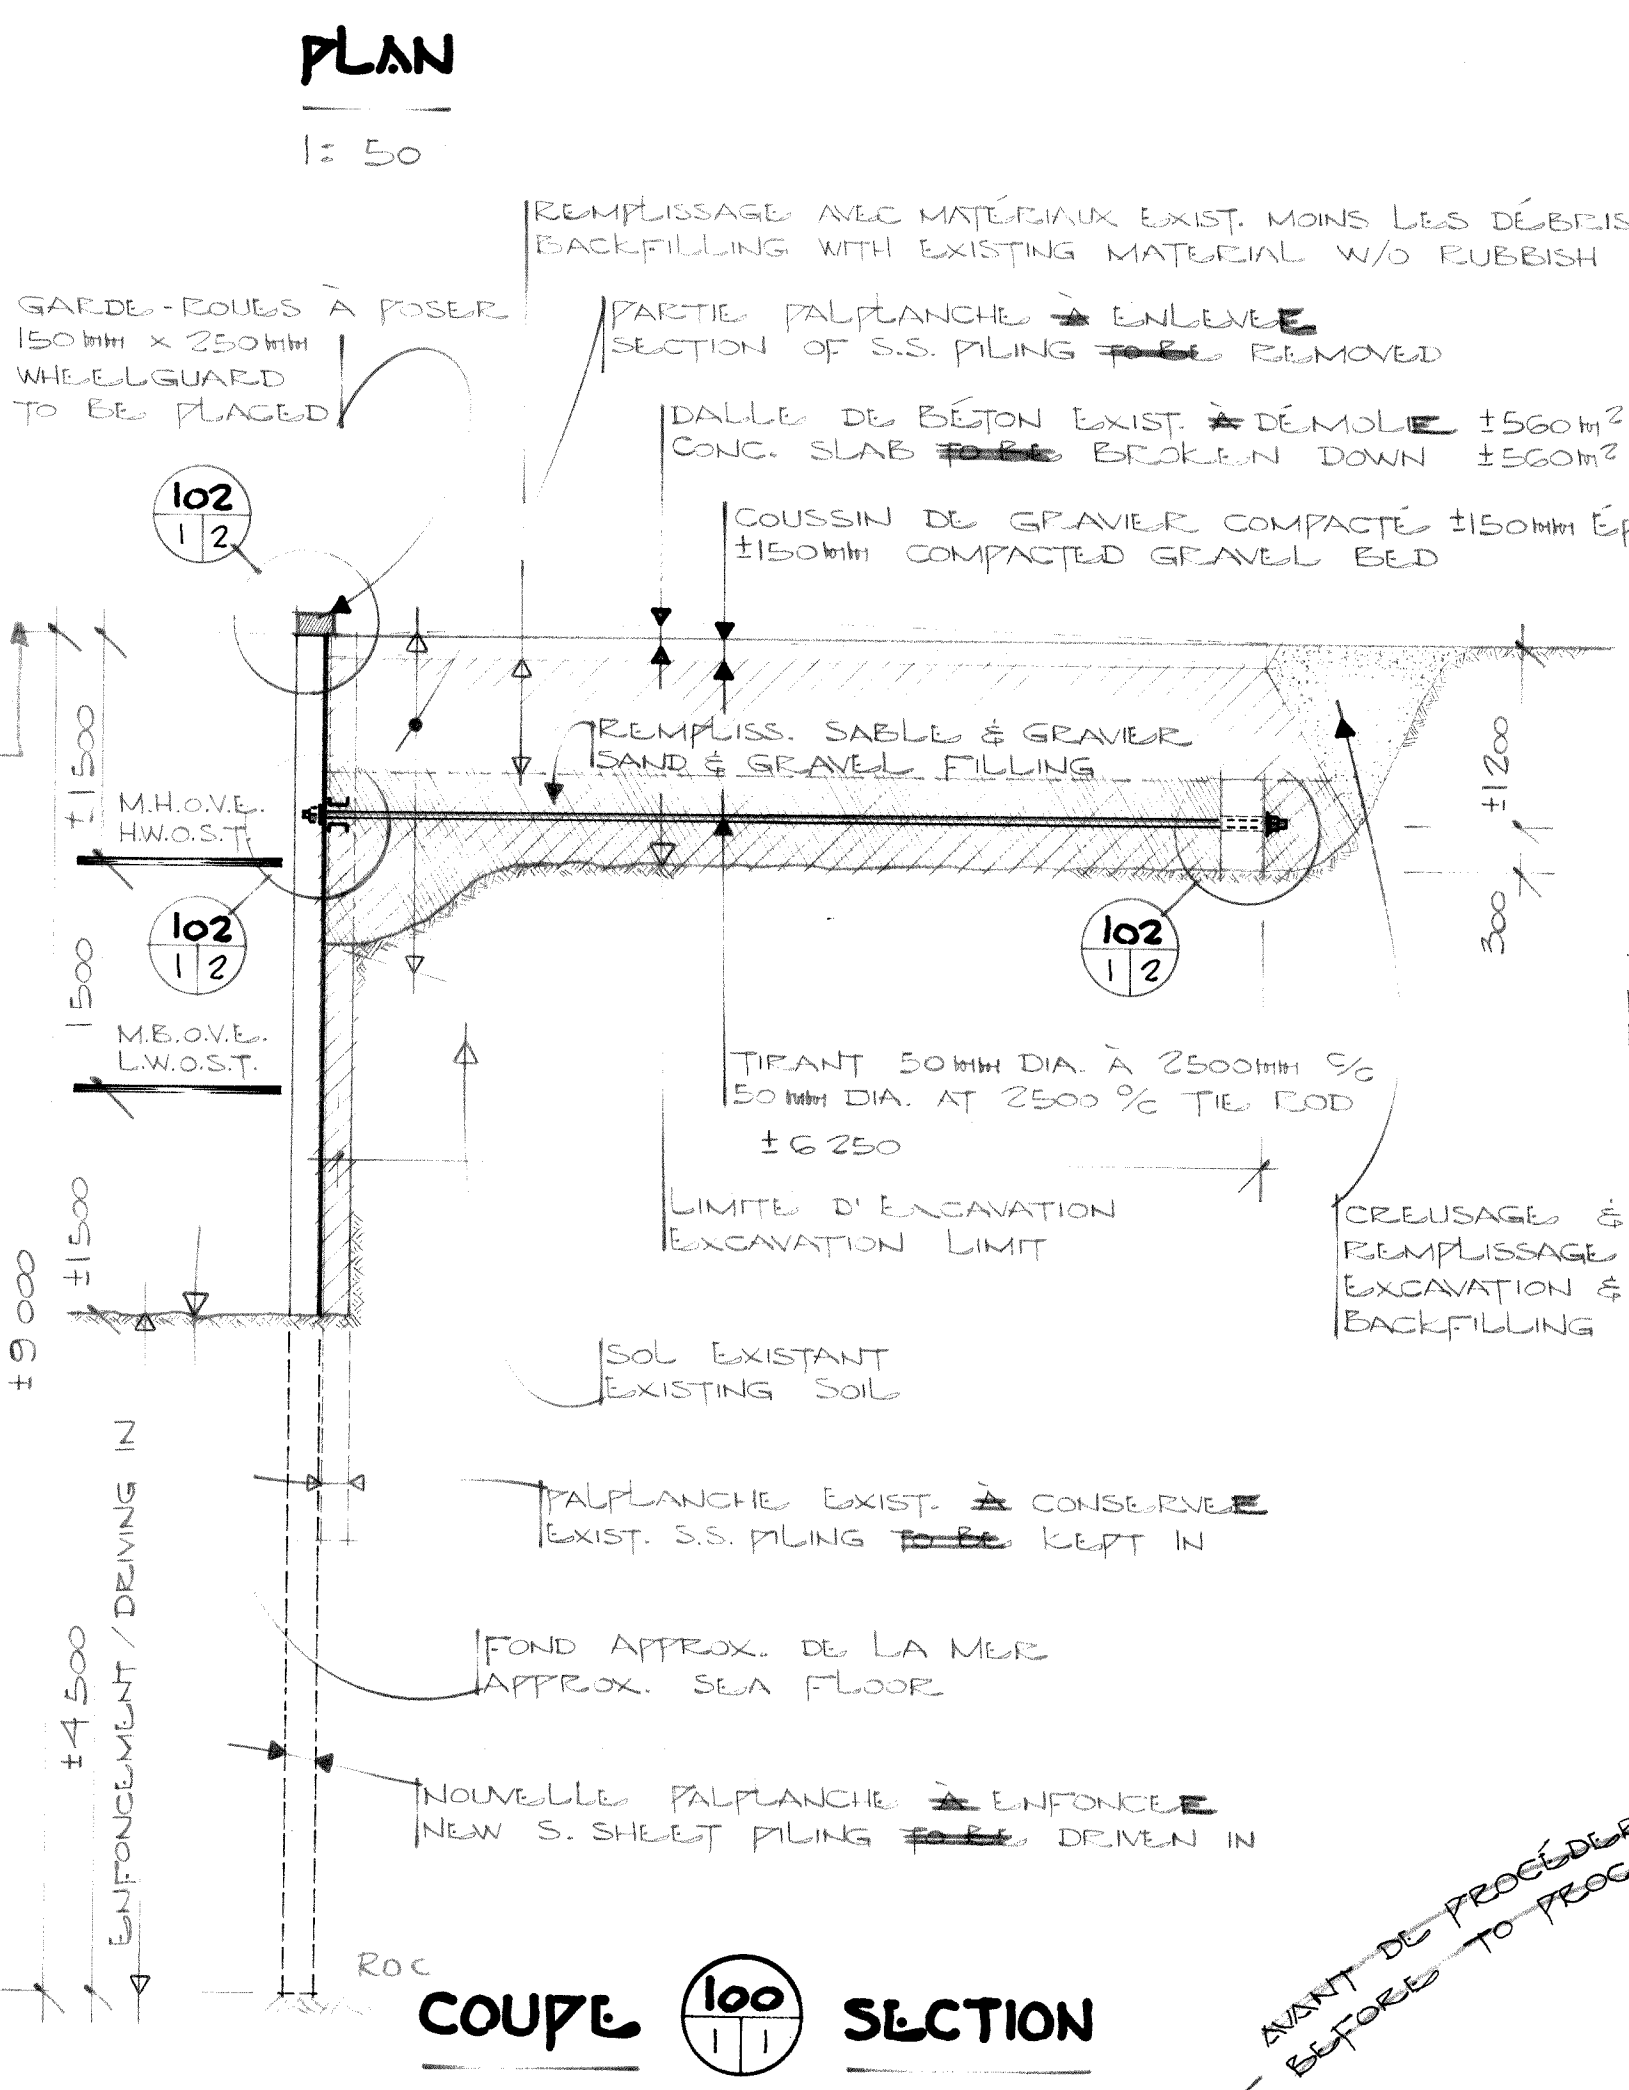 PLAN
1: 50
REMPLISSAGE AVEC MATÉRIAUX EXIST. MOINS LES DÉBRIS
BACKFILLING WITH EXISTING MATERIAL W/O RUBBISH
GARDE-ROUES À POSER
150mm x 250mm
WHEELGUARD
TO BE PLACED
PARTIE PALPLANCHE À ENLEVEE
SECTION OF S.S. PILING TO BE REMOVED
DALLE DE BÉTON EXIST. À DÉMOLE ±560m²
CONC. SLAB TO BE BROKEN DOWN ±560m²
102
1 2
COUSSIN DE GRAVIER COMPACTÉ ±150mm ÉP
±150mm COMPACTED GRAVEL BED
±1500
REMPLISS. SABLE & GRAVIER
SAND & GRAVEL FILLING
±1200
M.H.O.V.E.
H.W.O.S.T.
102
1 2
102
1 2
300
1500
M.B.O.V.E.
L.W.O.S.T.
TIRANT 50mm DIA. À 2500mm c/c
50mm DIA. AT 2500 c/c TIE ROD
±6250
±1500
LIMITE D'EXCAVATION
EXCAVATION LIMIT
CREUSAGE &
REMPLISSAGE
EXCAVATION &
BACKFILLING
±9000
SOL EXISTANT
EXISTING SOIL
ENFONCEMENT/DRIVING IN
PALPLANCHE EXIST. À CONSERVEE
EXIST. S.S. PILING TO BE KEPT IN
±4500
FOND APPROX. DE LA MER
APPROX. SEA FLOOR
NOUVELLE PALPLANCHE À ENFONCEE
NEW S. SHEET PILING TO BE DRIVEN IN
AVANT DE PROCÉDER
BEFORE TO PROC
ROC
COUPE 100 SECTION
1 1